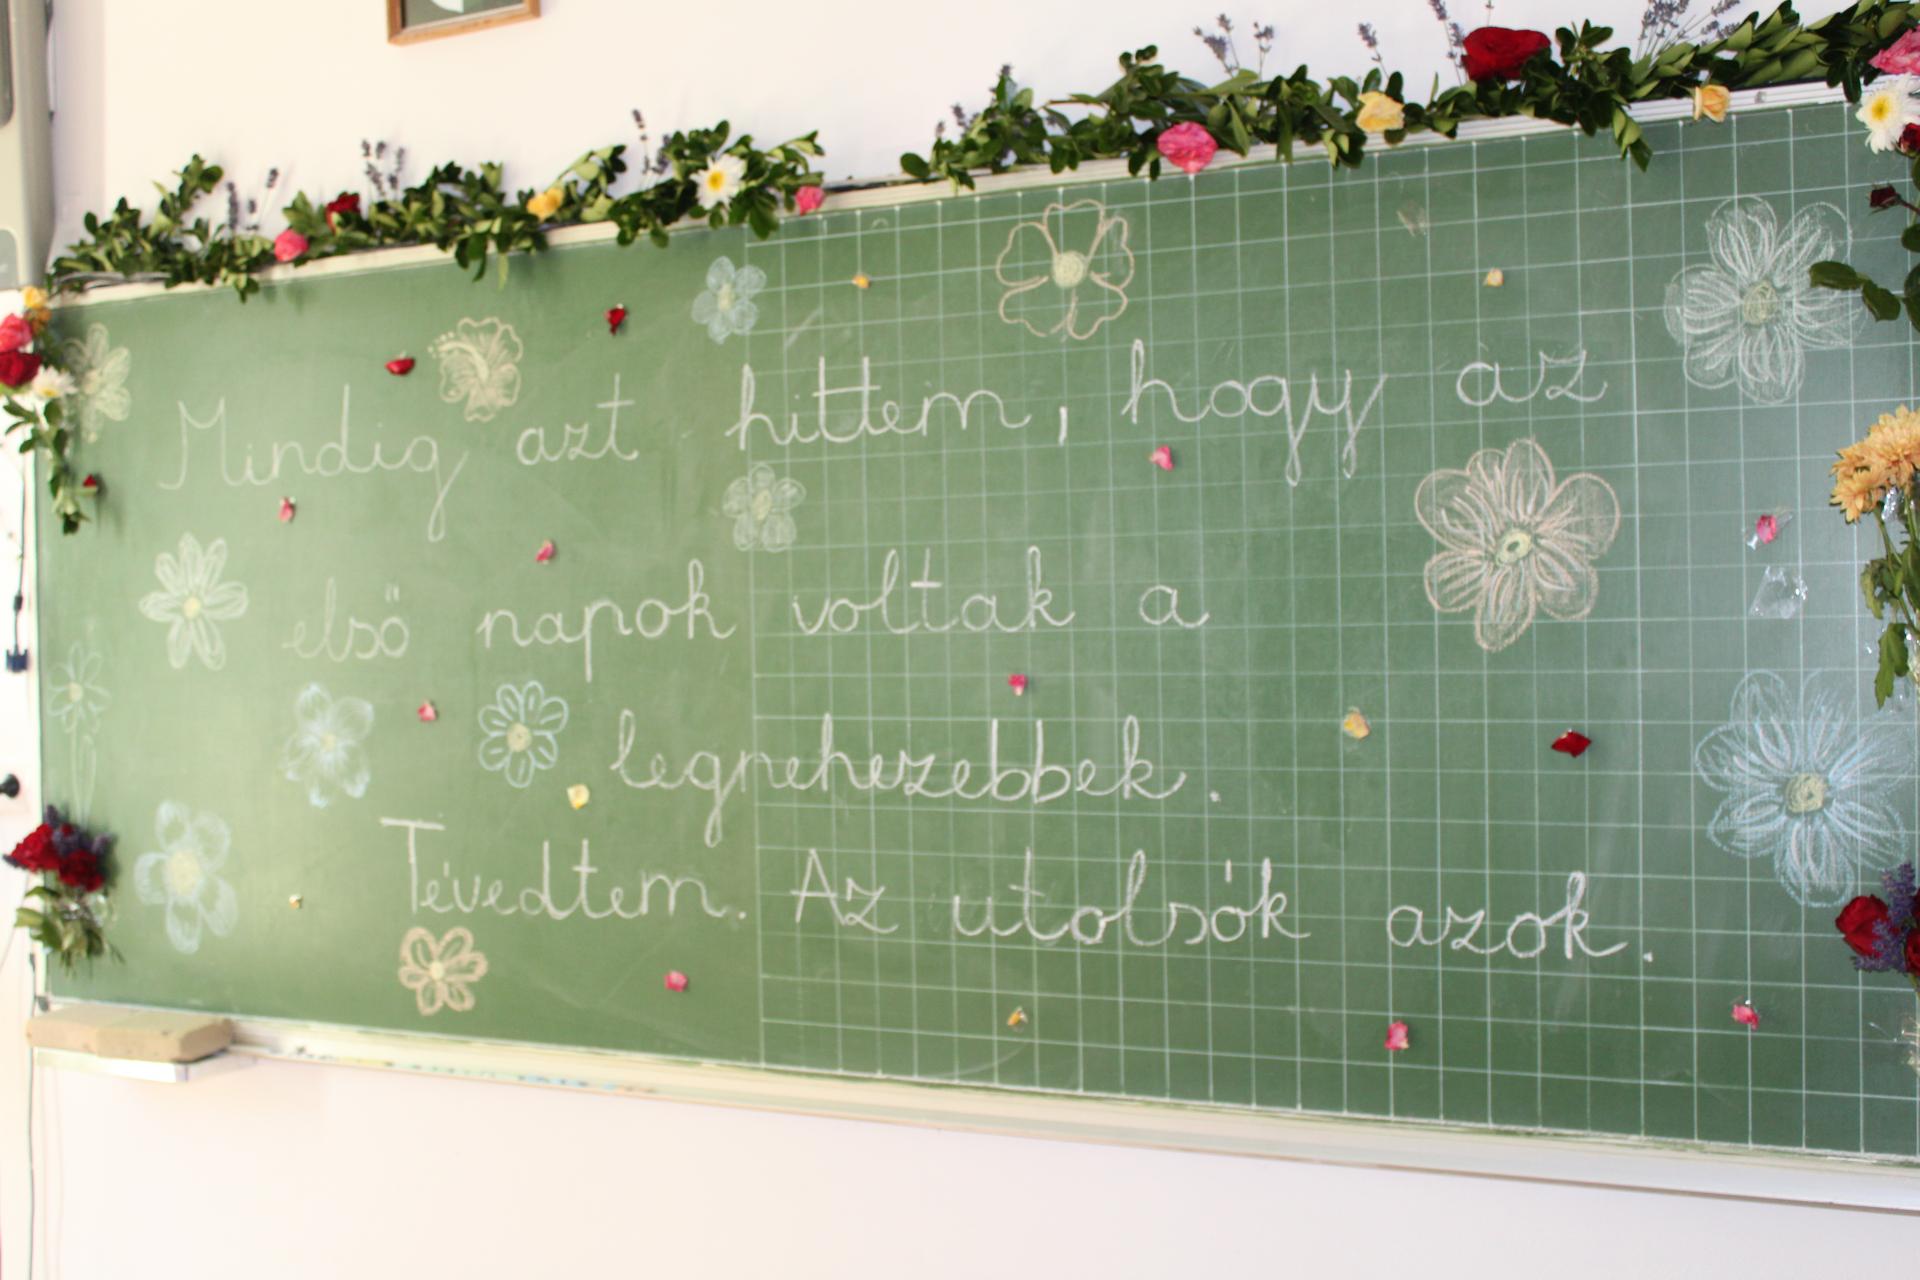 Mindig azt hittem, hogy az
első napok voltak a
legnehezebbek.
Tévedtem. Az utolsók azok.